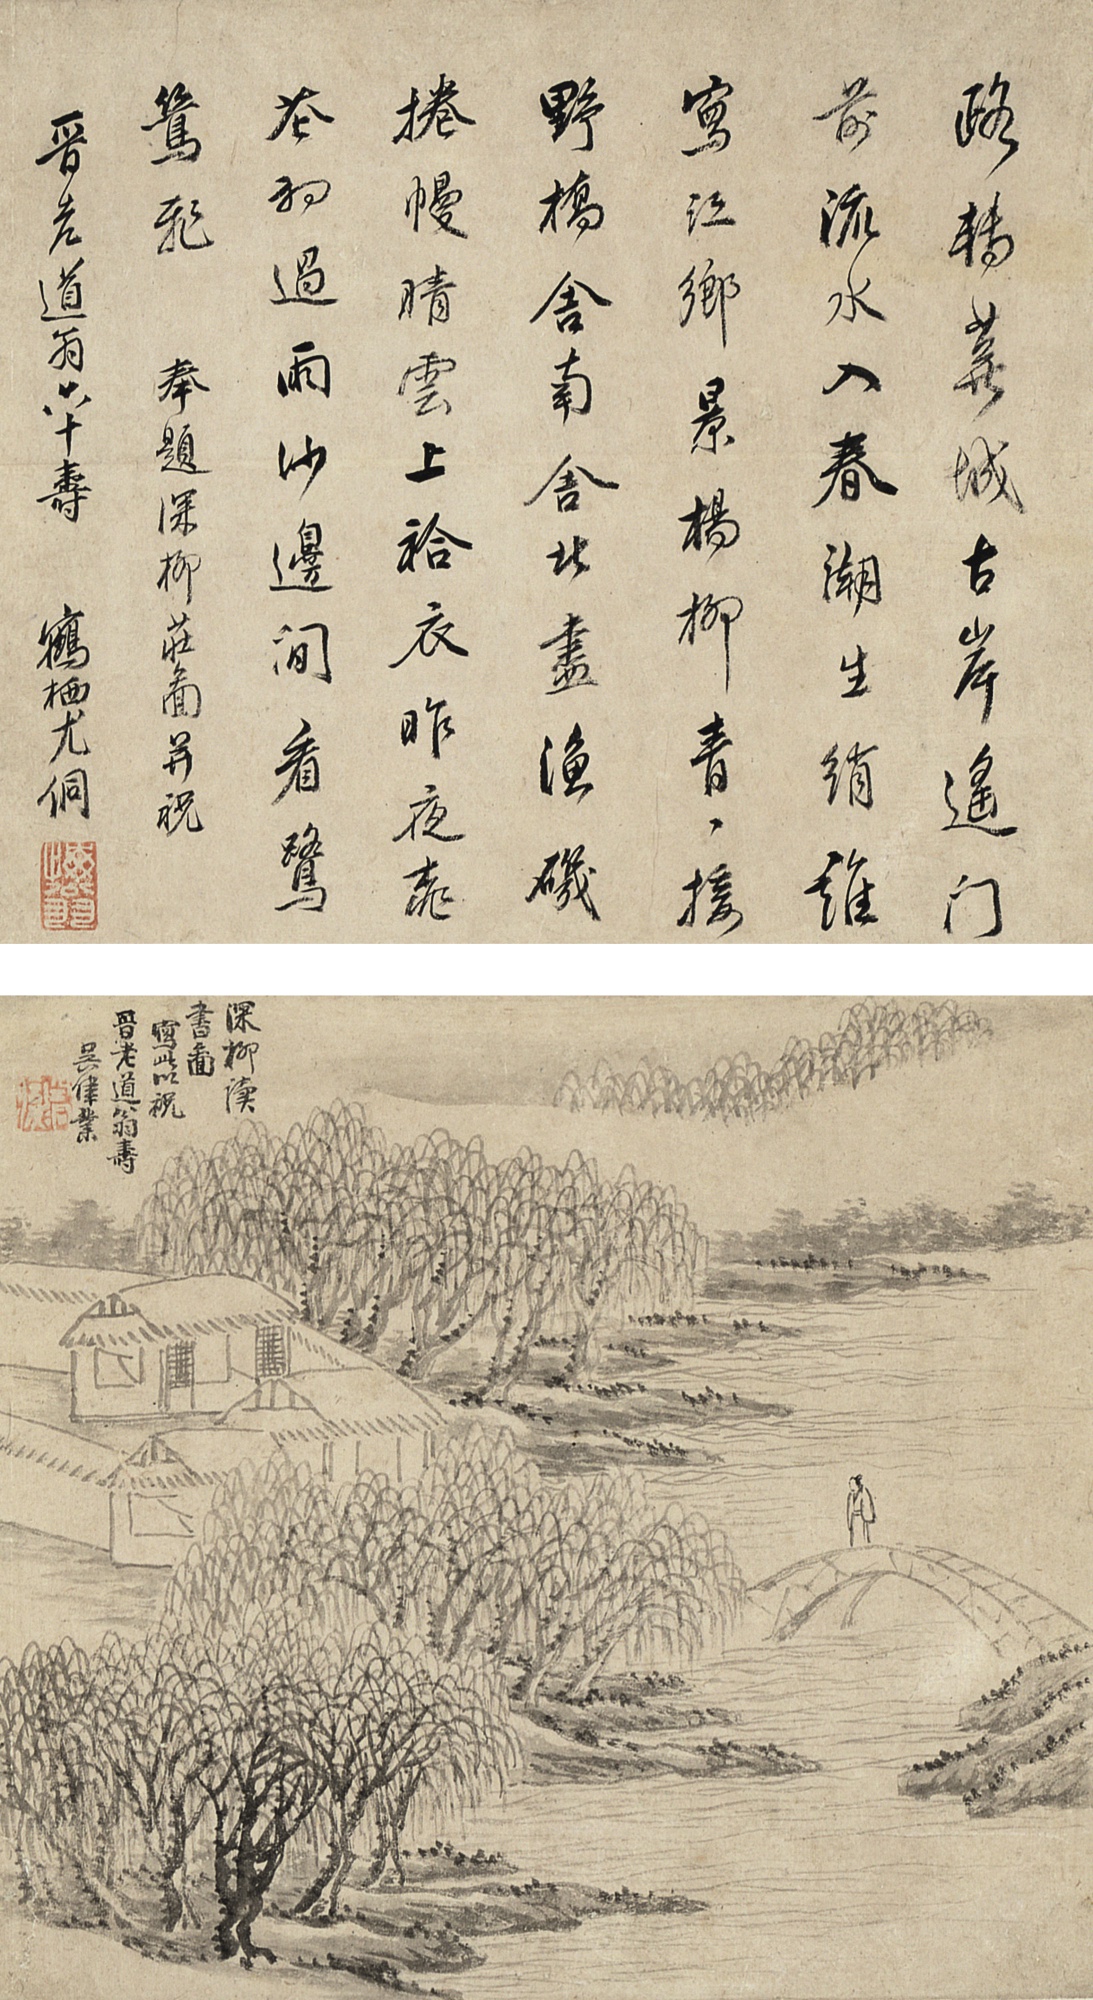 路轉蕪城古岸遙門
前流水入春潮生綃誰
寫江鄉景楊柳青〻接
野橋舍南舍北盡漁磯
捲幔晴雲上袷衣昨夜桃
花初過雨沙邊閒看鷺
鷥飛 奉題深柳莊圖并祝
晉老道翁六十壽 鶴栖尤侗
深柳讀
書圖
寫此以祝
晉老道翁壽
吳偉業